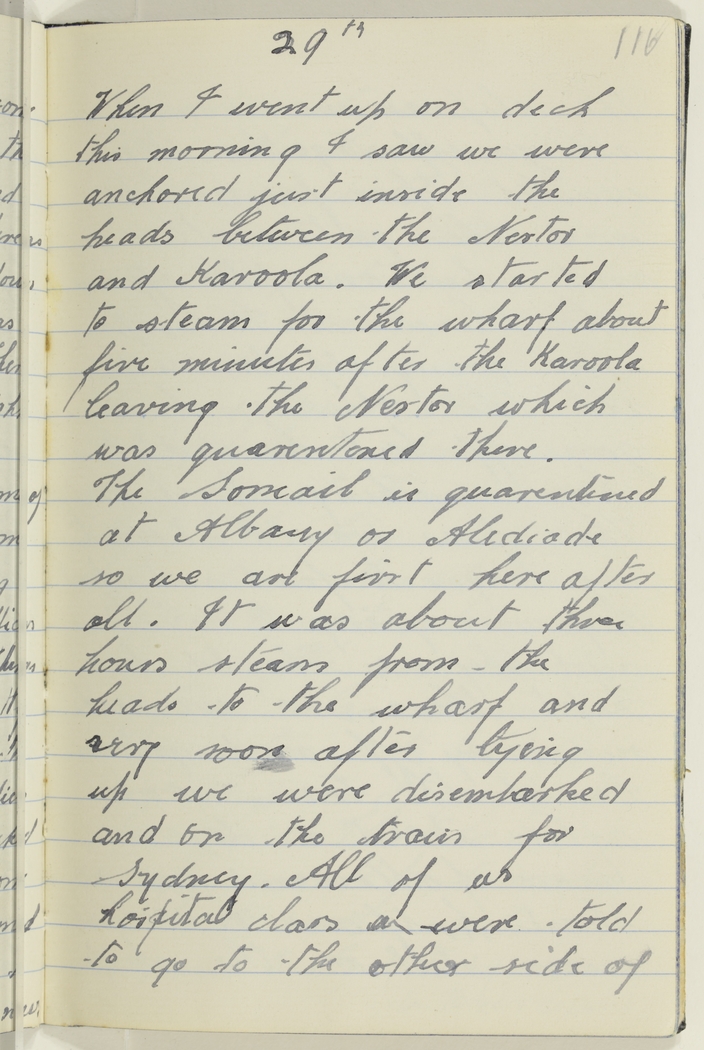 29th
116
When I went up on deck
this morning I saw we were
anchored just inside the
heads between the Nestor
and Karoola. We started
to steam for the wharf about
five minutes after the Karoola
leaving the Nestor which
was quarentened there.
The Somail is quarentined
at Albany or Alediade
so we are first here after
all. It was about three
hours steam from the
heads to the wharf and
very soon after tying
up we were disembarked
and on the train for
Sydney. All of us
hospital class were told
to go to the other side of